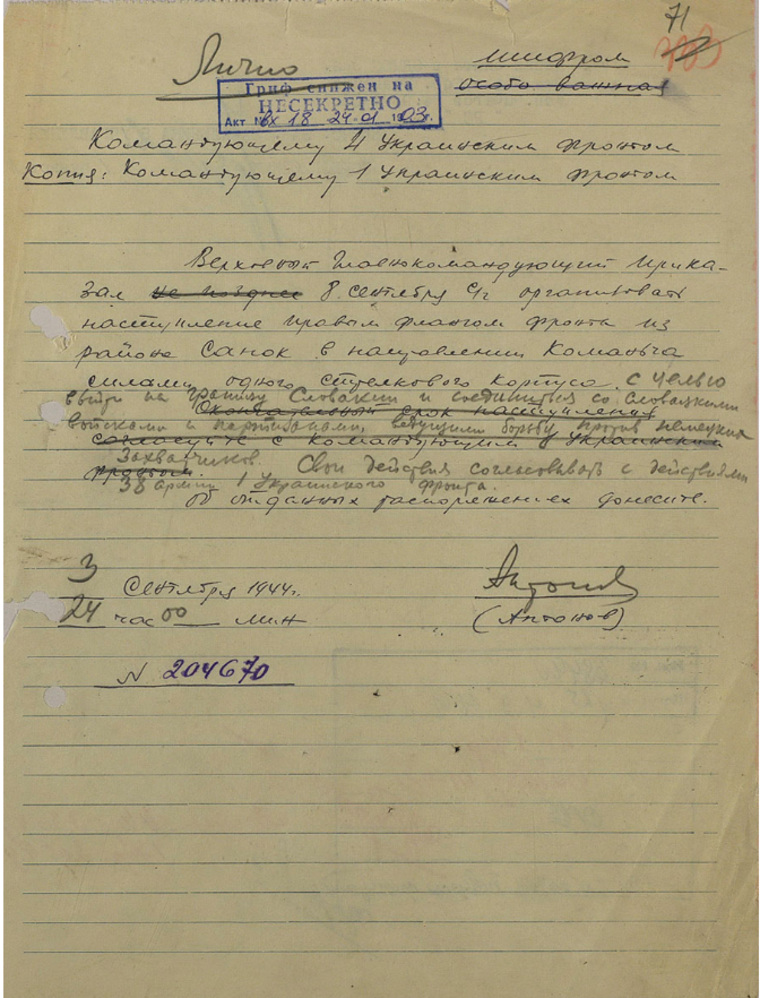 71
Лично
шифром
особо важная
Гриф снижен на
НЕСЕКРЕТНО
Акт № вх 18 24.01 1903г.
Командующему 4 Украинским фронтом
Копия: Командующему 1 Украинским фронтом
Верховный Главнокомандующий прика-
зал не позднее 8 сентября с/г организовать
наступление правым флангом фронта из
района Санок в направлении Команьча
силами одного стрелкового корпуса с целью
выйти на границу Словакии и соединиться со словацкими
Окончательный срок наступления
войсками и партизанами, ведущими борьбу против немецких
согласуйте с командующим 1 Украинским
захватчиков. Свои действия согласовывать с действиями
фронтом.
38 армии 1 Украинского фронта.
Об отданных распоряжениях донесите.
3 Сентября 1944г.
24 час 00 мин
Антонов
(Антонов)
N 204670